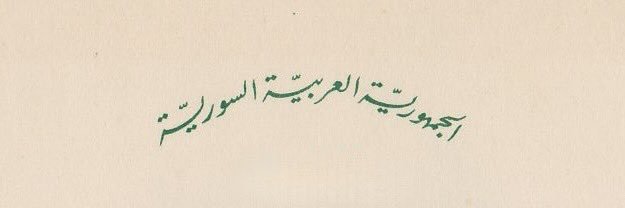 الجمهوريّة العربيّة السوريّة